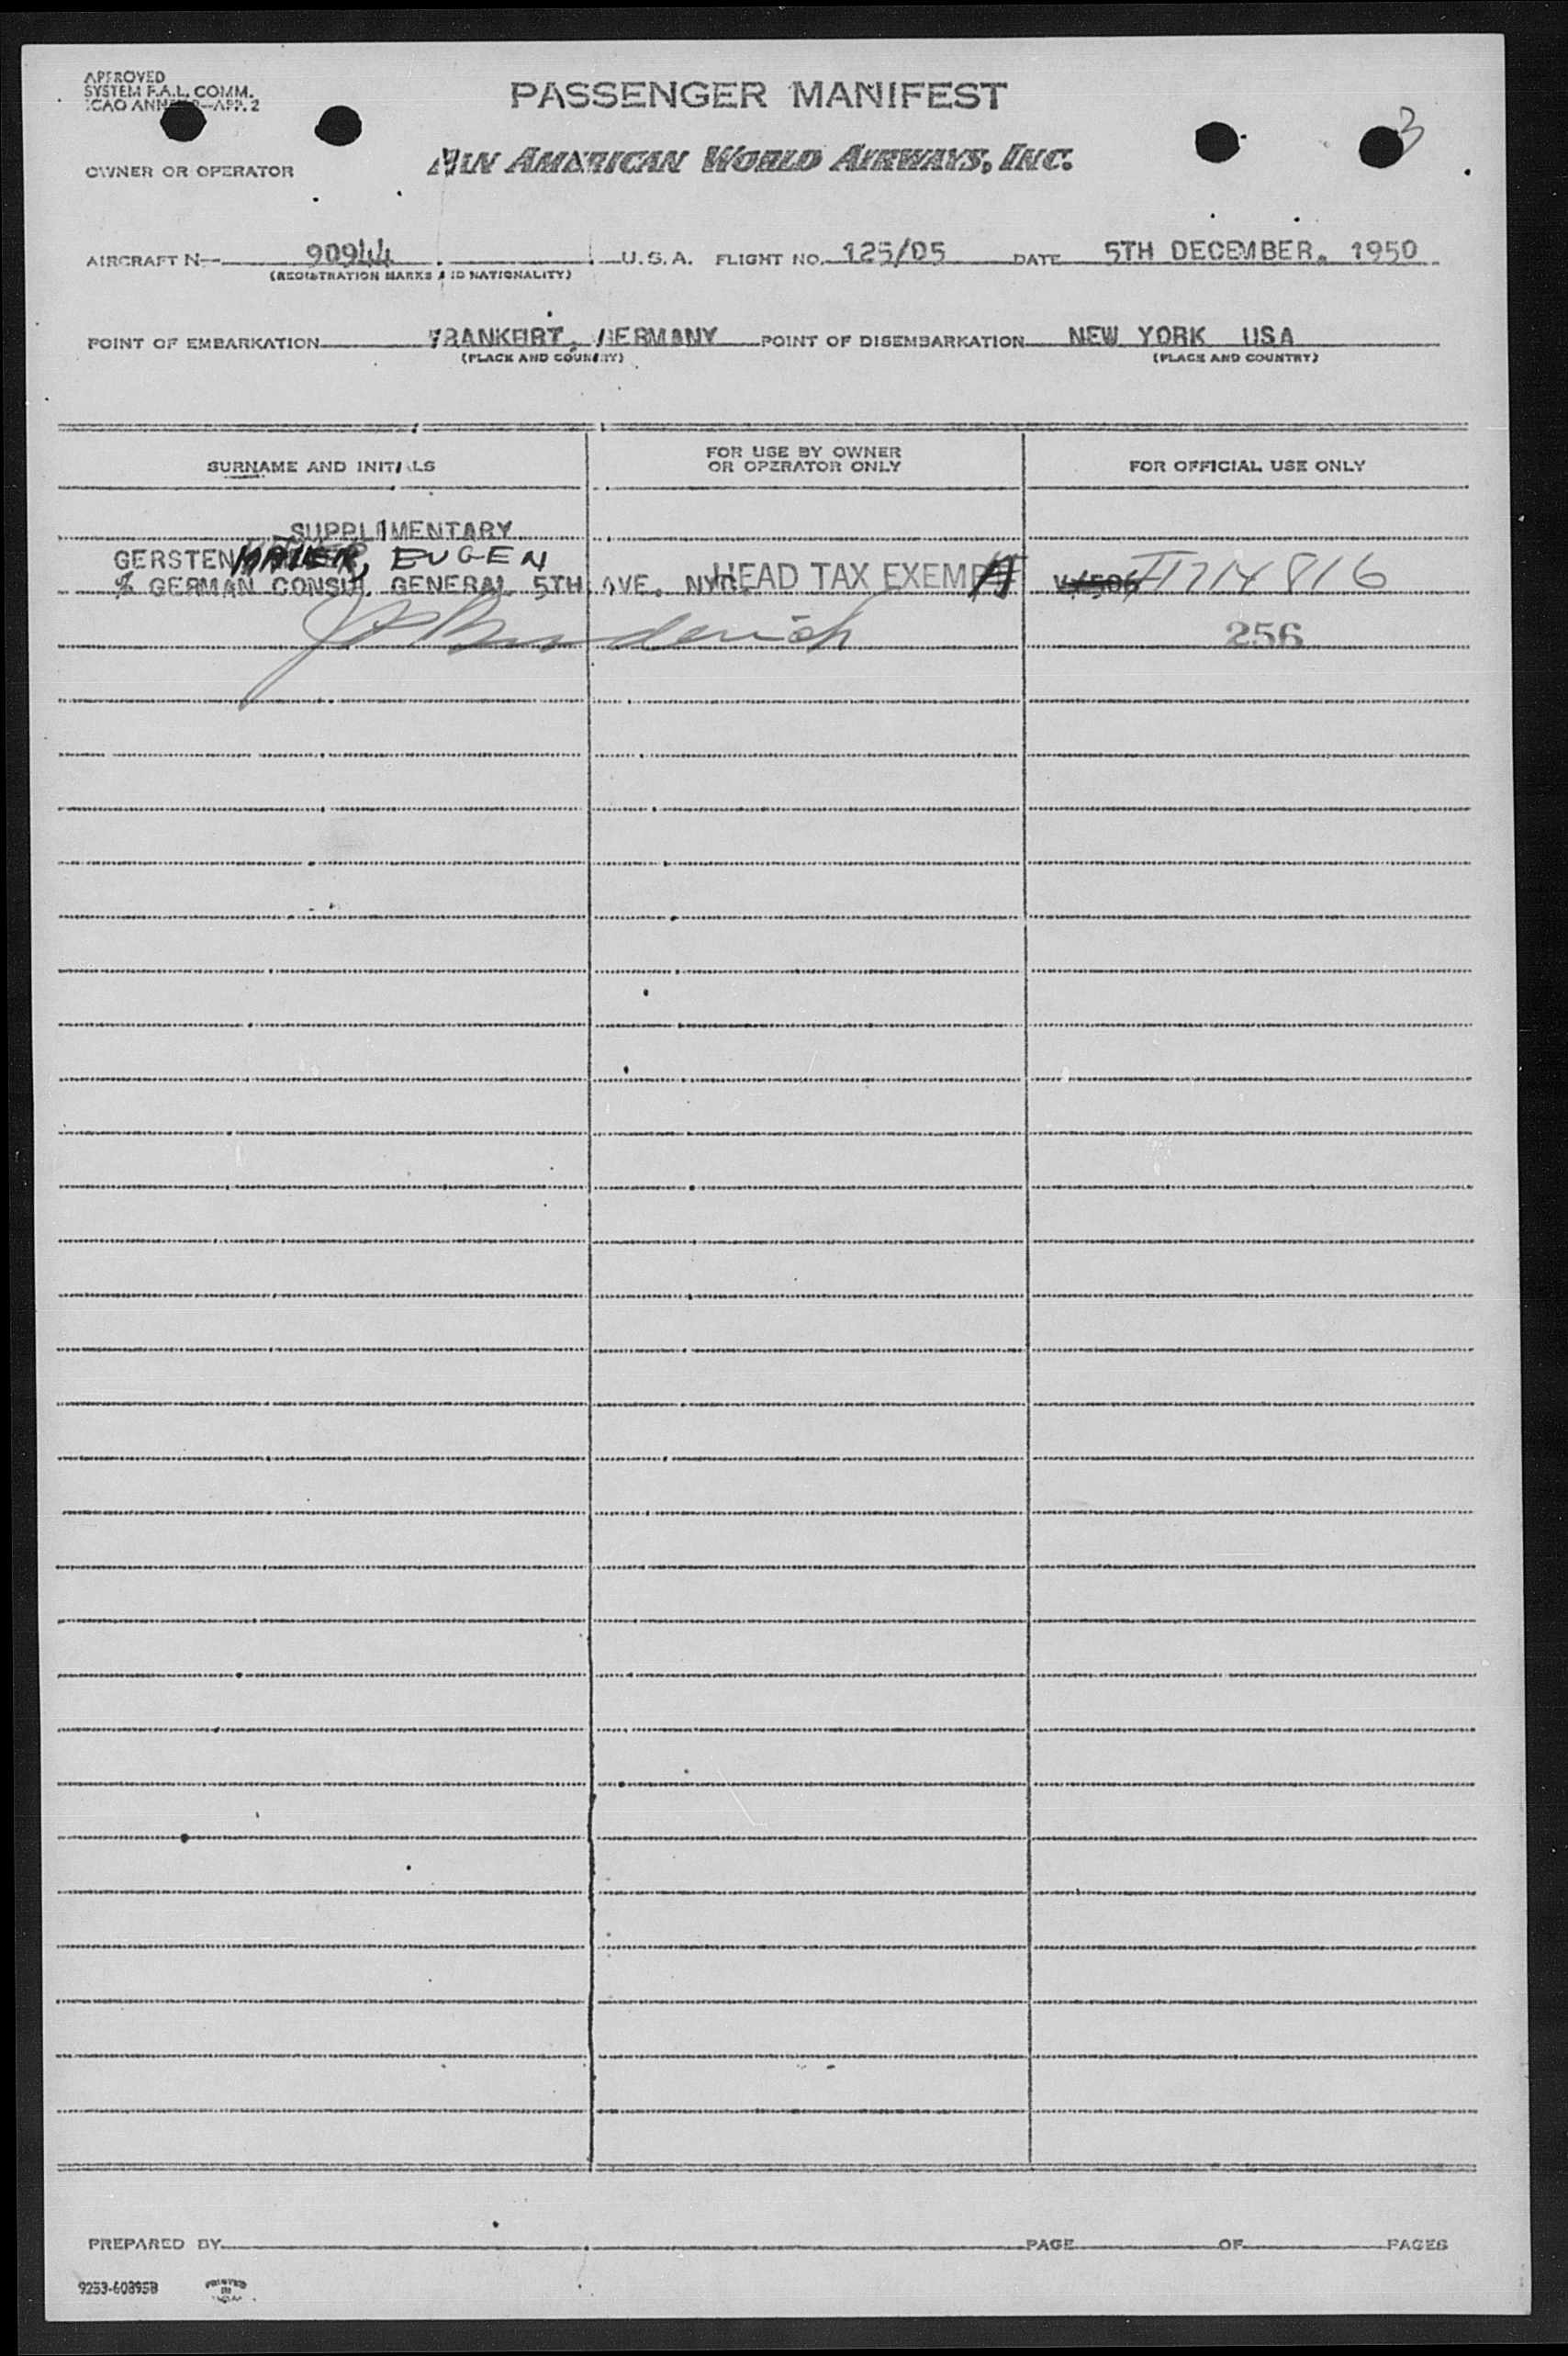 APPROVED
SYSTEM F.A.L. COMM.
ICAO ANNEX 9—APP. 2
PASSENGER MANIFEST
3
OWNER OR OPERATOR
PAN AMERICAN WORLD AIRWAYS, INC.
AIRCRAFT N— 90944 U.S.A. FLIGHT NO. 125/05 DATE 5TH DECEMBER. 1950
(REGISTRATION MARKS AND NATIONALITY)
POINT OF EMBARKATION FRANKFRT, GERMANY POINT OF DISEMBARKATION NEW YORK USA
(PLACE AND COUNTRY) (PLACE AND COUNTRY)
SURNAME AND INITIALS FOR USE BY OWNER OR OPERATOR ONLY FOR OFFICIAL USE ONLY
SUPPLIMENTARY
GERSTENMAIER, EUGEN
% GERMAN CONSUL GENERAL 5TH AVE. NYC. HEAD TAX EXEMPT 1714816
256
PREPARED BY PAGE OF PAGES
9253-60895B PRINTED IN U.S.A.